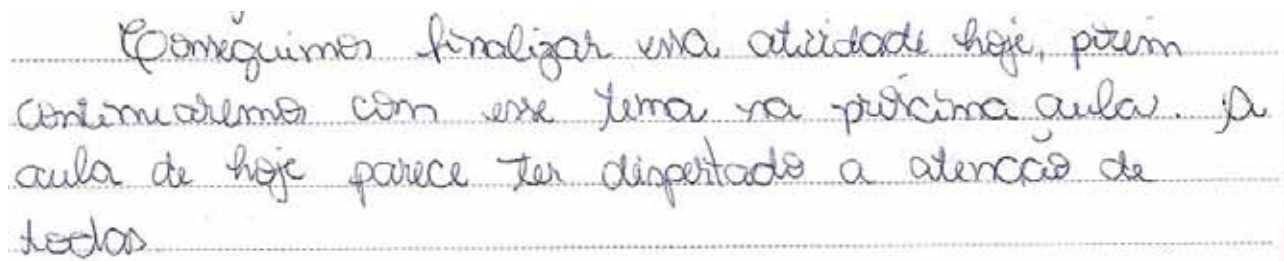 Conseguimos finalizar essa atividade hoje, porém
continuaremos com esse tema na próxima aula. A
aula de hoje parece ter dispertado a atenção de
todos